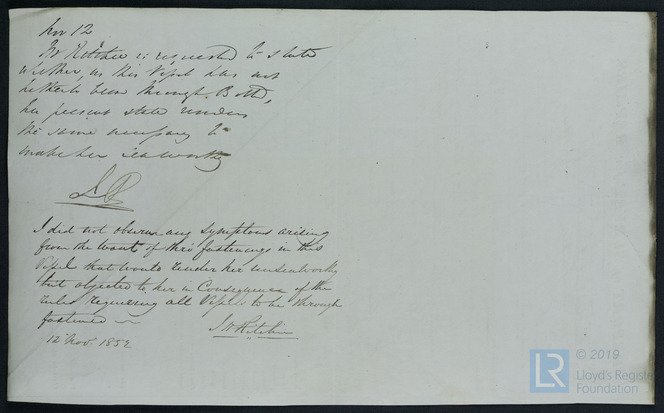 Nov 12
Mr Ritchie is requested to state
whether, as this Vessel has not
hitherto been through Bolted,
her present state renders
the same necessary to
make her seaworthy
I did not observe any Symptoms arising
from the want of thro' fastenings in this
Vessel that would render her unseaworthy
but objected to her in Consequence of the
rules requiring all Vessels to be through
fastened
J H Ritchie
12 Nov. 1852
© 2019
LR Lloyd's Register
Foundation